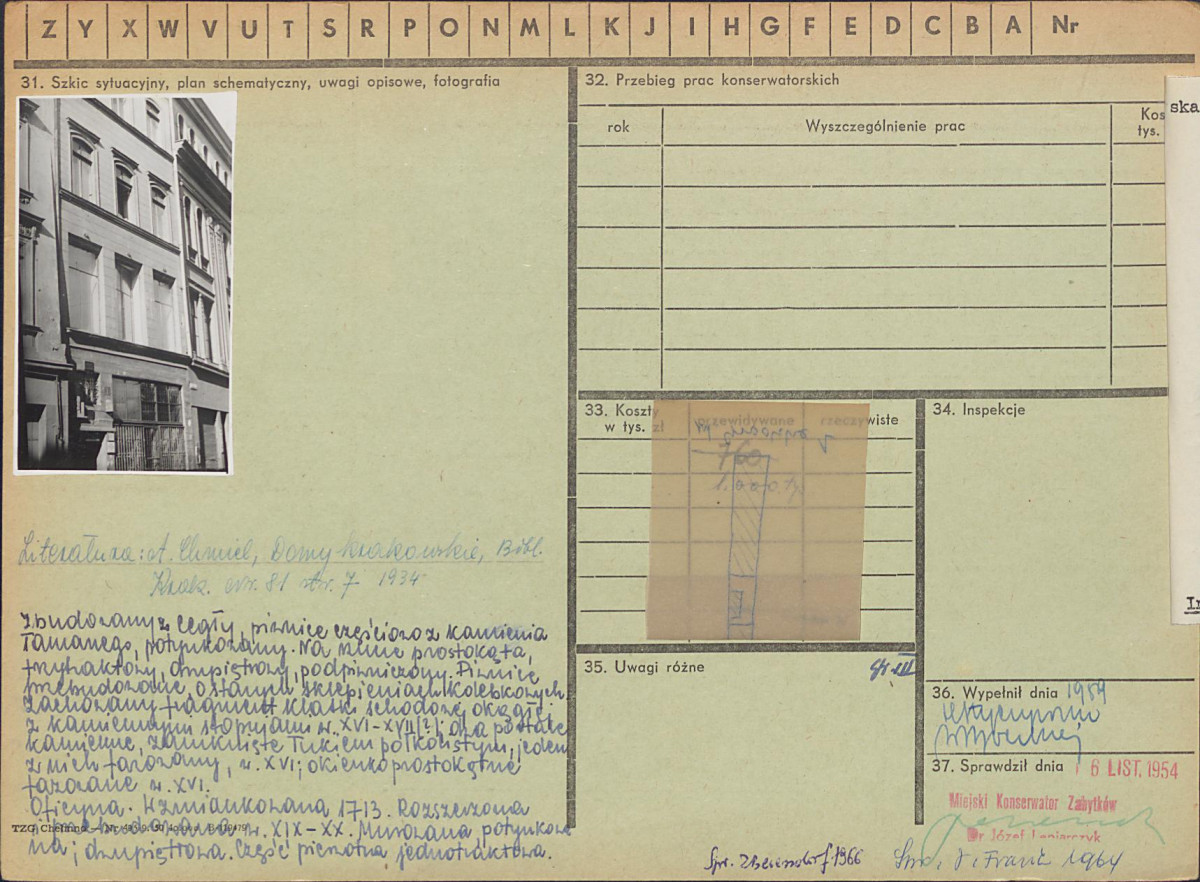 Z Y X W V U T S R P O N M L K J I H G F E D C B A Nr
31. Szkic sytuacyjny, plan schematyczny, uwagi opisowe, fotografia
Literatura: A. Chmiel, Domy krakowskie, Bibl.
Krak. nr. 81 str. 7 1934
Zbudowany z cegły, piwnice częściowo z kamienia
łamanego, potynkowany. Na planie prostokąta,
trzytraktowy, dwupiętrowy, podpiwniczony. Piwnice
przebudowane, o starych sklepieniach kolebkowych.
Zachowany fragment klatki schodowej okrągłej
z kamiennymi stopniami w. XVI-XVII(?); dwa portale
kamienne, zamknięte łukiem półkolistym, jeden
z nich fazowany, w. XVI; okienko prostokątne
fazowane w. XVI.
Oficyna. Wzmiankowana 1713. Rozszerzona
w. XIX-XX. Murowana, potynkowa
na; dwupiętrowa. Część pierwotna jednotraktowa.
TZG Chełmno
32. Przebieg prac konserwatorskich
rok Wyszczególnienie prac Kos
tys.
ska
33. Koszty przewidywane rzeczywiste
w tys. zł
760
34. Inspekcje
35. Uwagi różne
36. Wypełnił dnia 1954
37. Sprawdził dnia 6 LIST. 1954
Miejski Konserwator Zabytków
Dr Józef Lepiarczyk
Spr. 1966
Spr. 1964